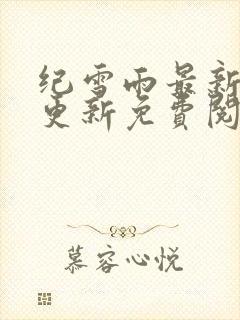 纪雪雨最新
更新免费阅
慕容心悦